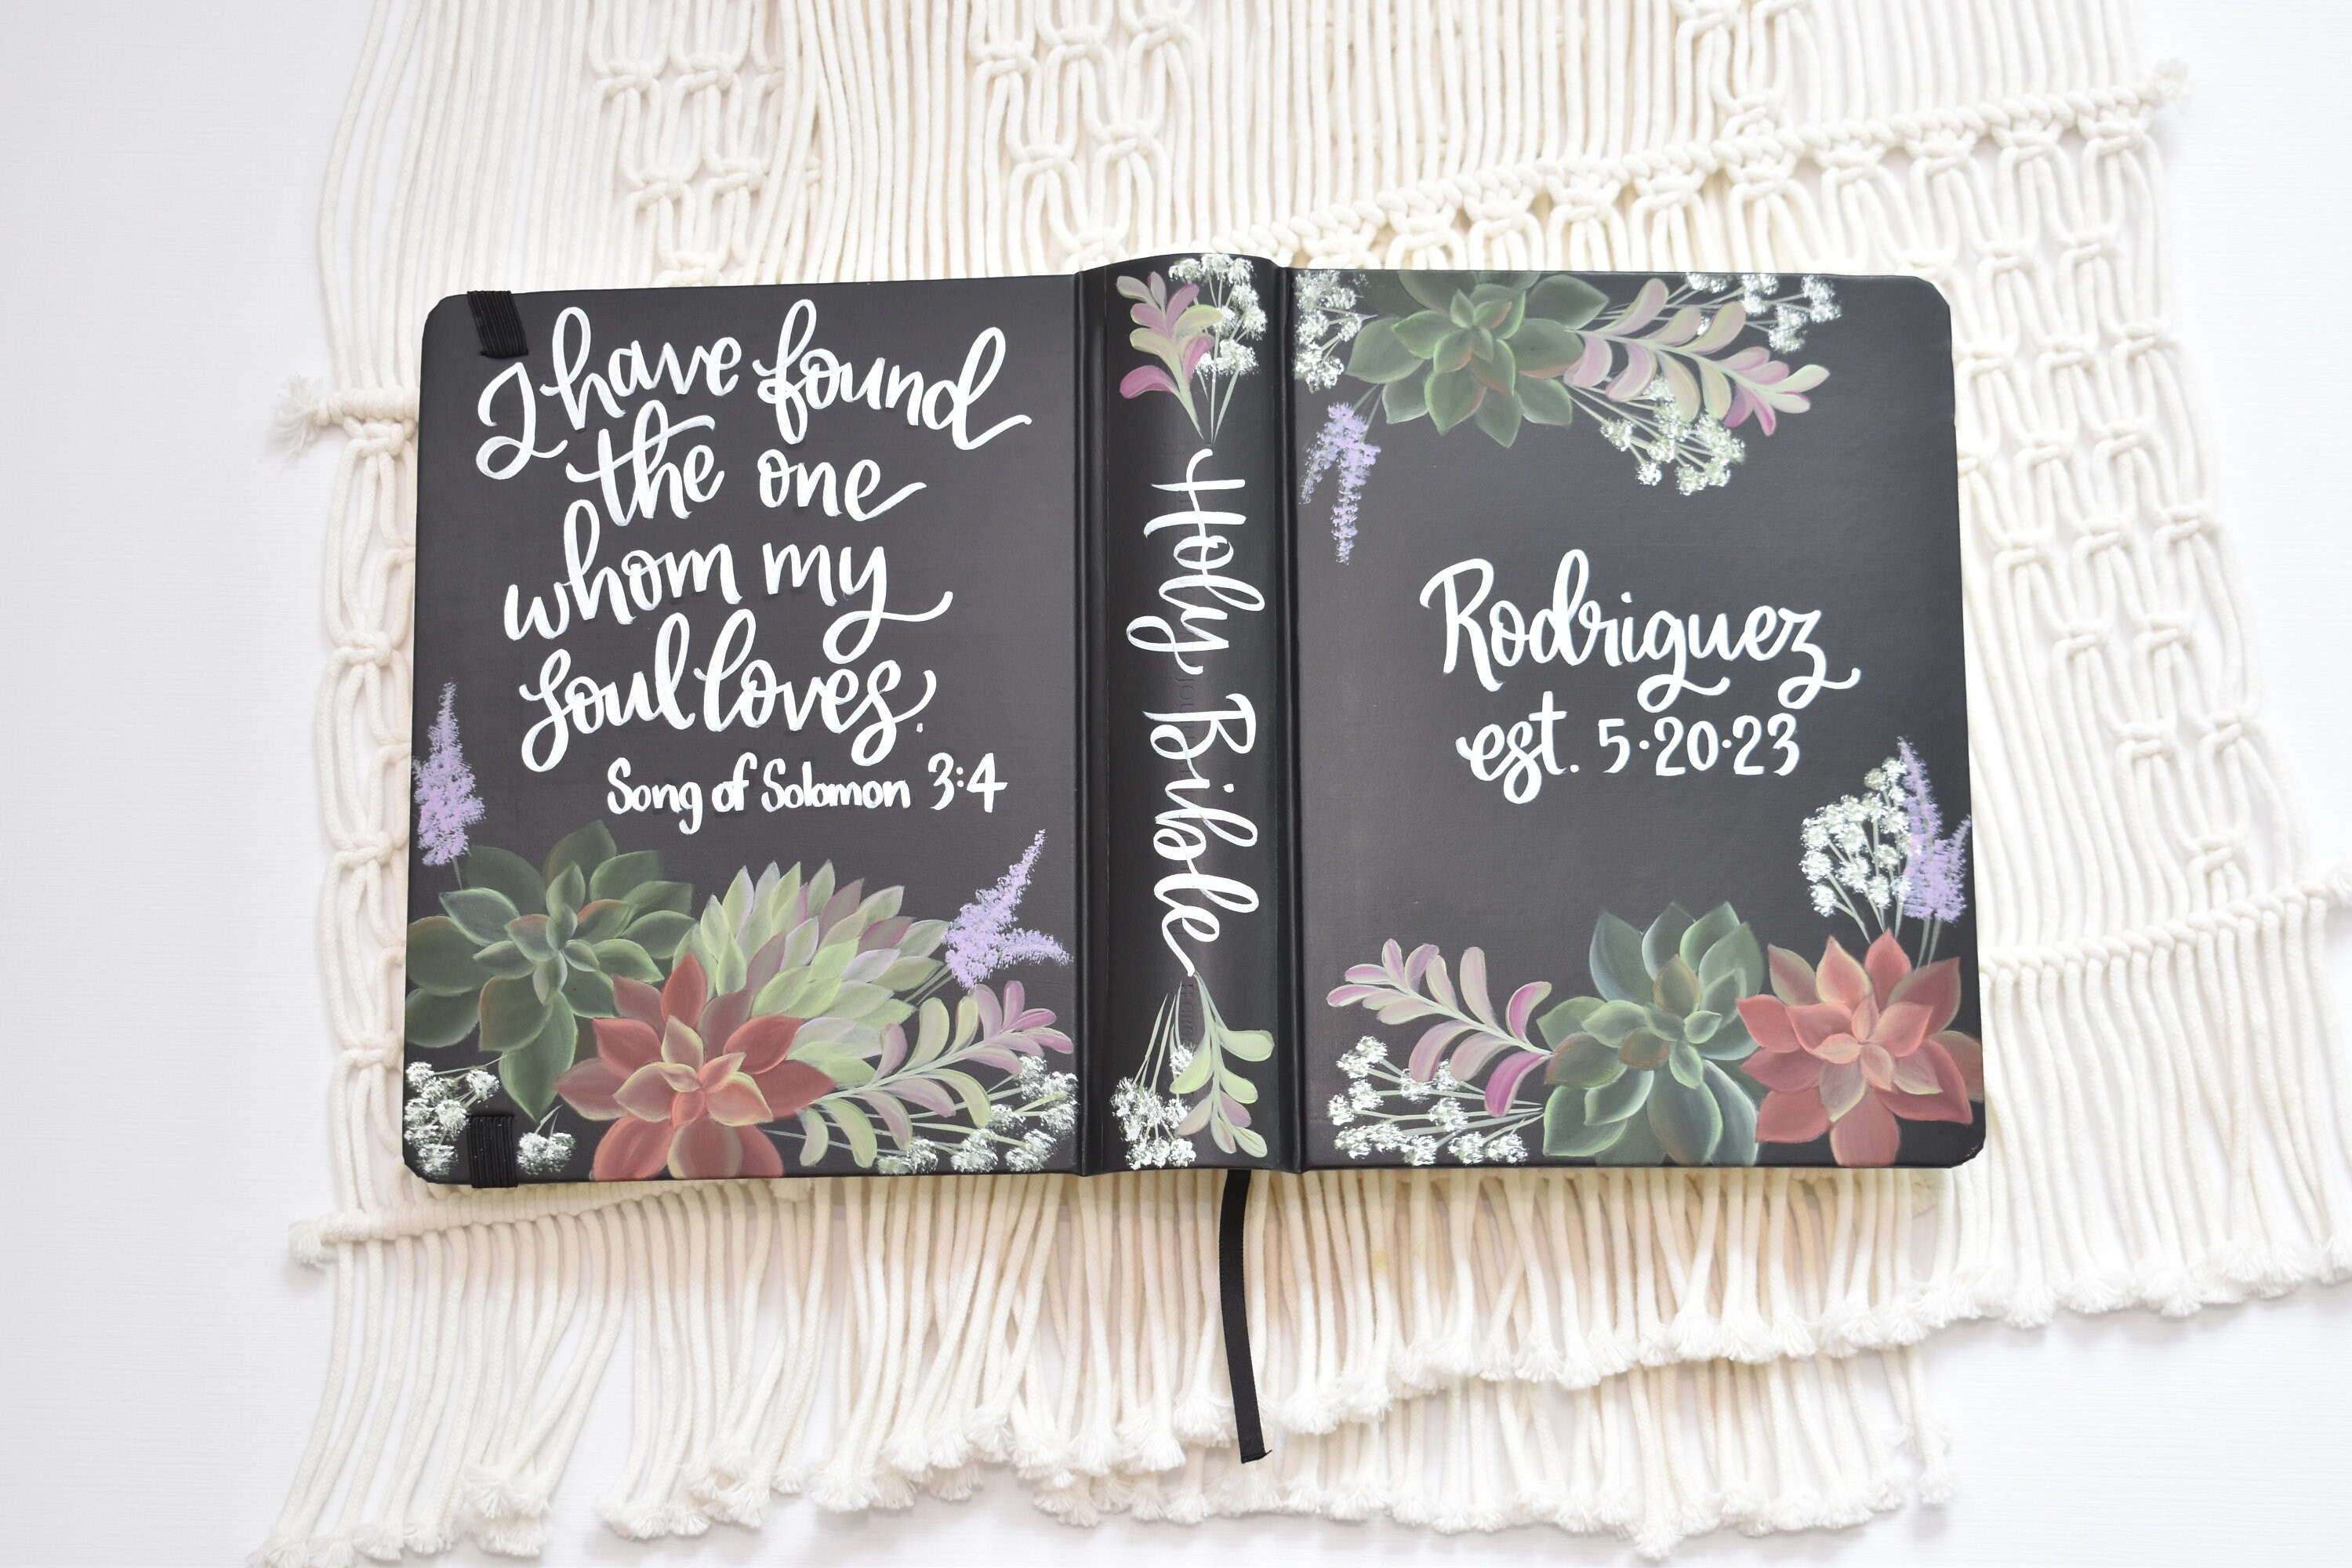 I have found
the one
whom my
soul loves.
Song of Solomon 3:4
Holy Bible
Rodriguez
est. 5·20·23